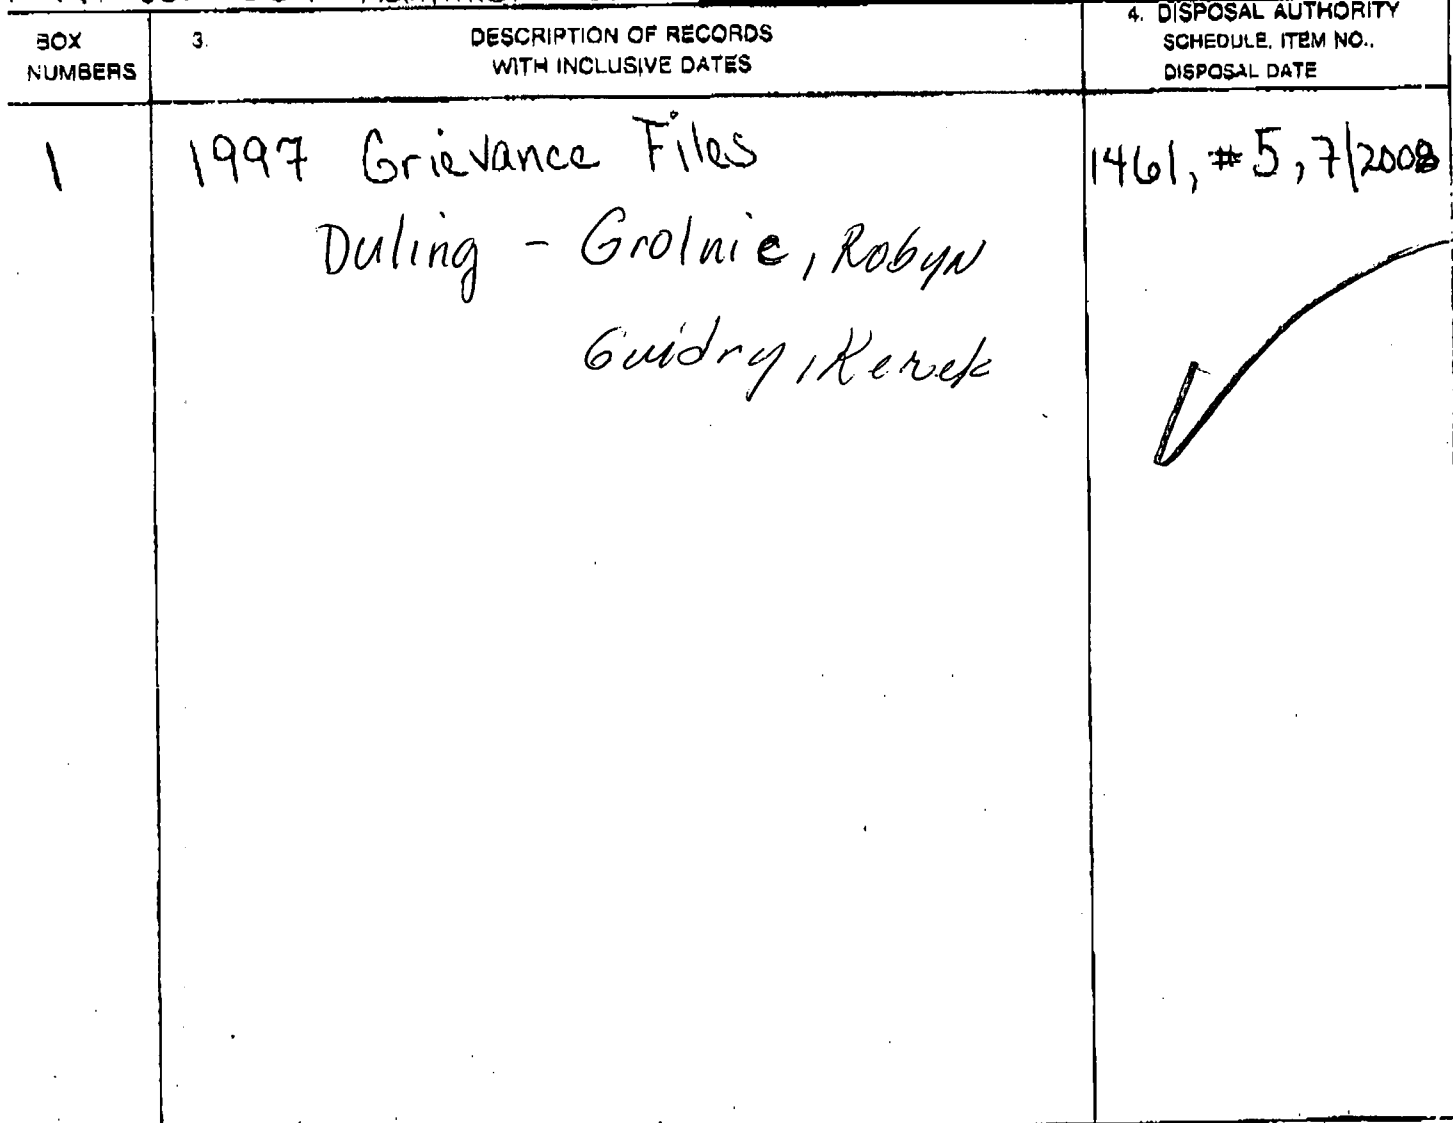 BOX
NUMBERS
3.
DESCRIPTION OF RECORDS
WITH INCLUSIVE DATES
4. DISPOSAL AUTHORITY
SCHEDULE, ITEM NO.,
DISPOSAL DATE
1
1997 Grievance Files
1461, #5, 7/2008
Duling - Grolnic, Robyn
Guidry, Kerek